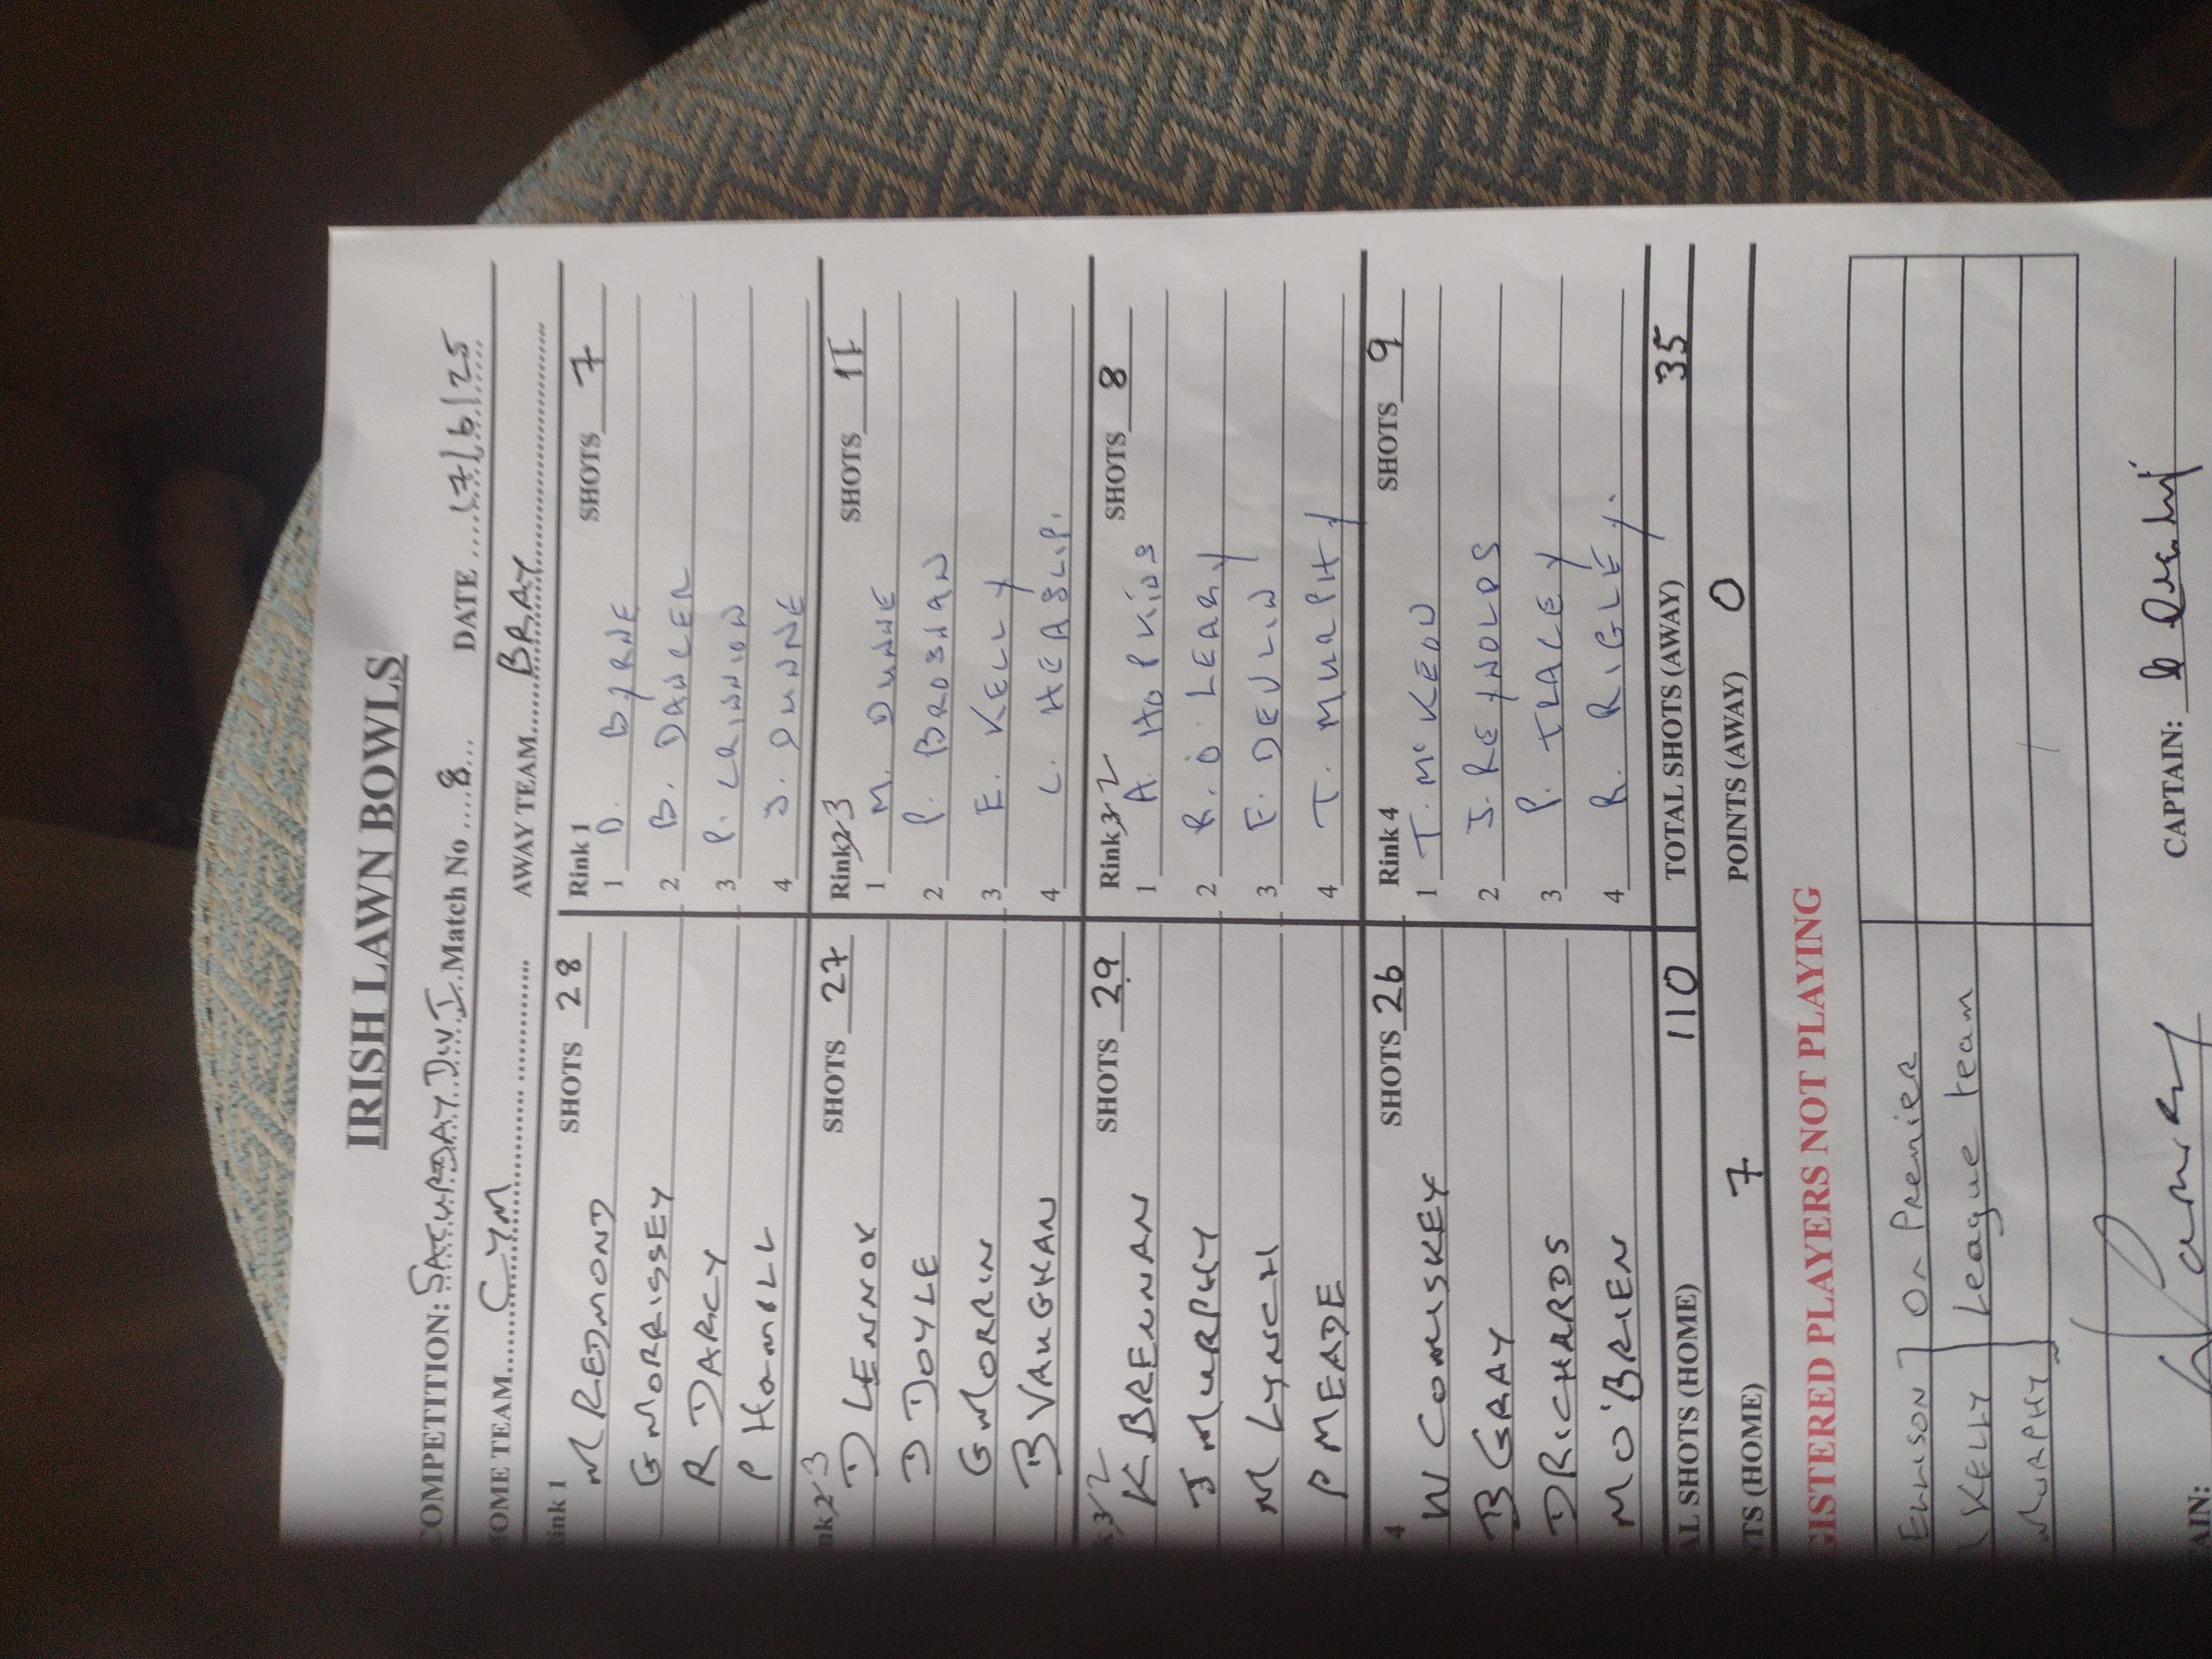 IRISH LAWN BOWLS
OMPETITION: SATURDAY DIV I Match No ....8... DATE ....17/6/25
OME TEAM......CYM............ AWAY TEAM......BRAY............
ink 1 SHOTS 28 Rink 1 SHOTS 7
M REDMOND 1 D. BYRNE
G MORRISSEY 2 B. DANCER
R DARCY 3 P. CRINNION
P HAMILL 4 J. DUNNE
nk 2 3 SHOTS 27 Rink 2 3 SHOTS 11
D LENNOX 1 M. DUNNE
D DOYLE 2 P. BROSNAN
G MORRIN 3 E. KELLY
B VAUGHAN 4 L. HEASLIP.
3 2 SHOTS 29 Rink 3 2 SHOTS 8
K BRENNAN 1 A. HOPKINS
J MURPHY 2 R. O LEARY
M LYNCH 3 F. DEVLIN
P MEADE 4 T. MURPHY
4 SHOTS 26 Rink 4 SHOTS 9
W COMISKEY 1 T. McKEOWN
B GRAY 2 J. REYNOLDS
D RICHARDS 3 P. TRACEY
M O'BRIEN 4 R. RIGLEY.
AL SHOTS (HOME) 110 TOTAL SHOTS (AWAY) 35
NTS (HOME) 7 POINTS (AWAY) 0
GISTERED PLAYERS NOT PLAYING
ELLISON ] On Premier
KELLY ] League team
MURPHY ]
TAIN: CAPTAIN: